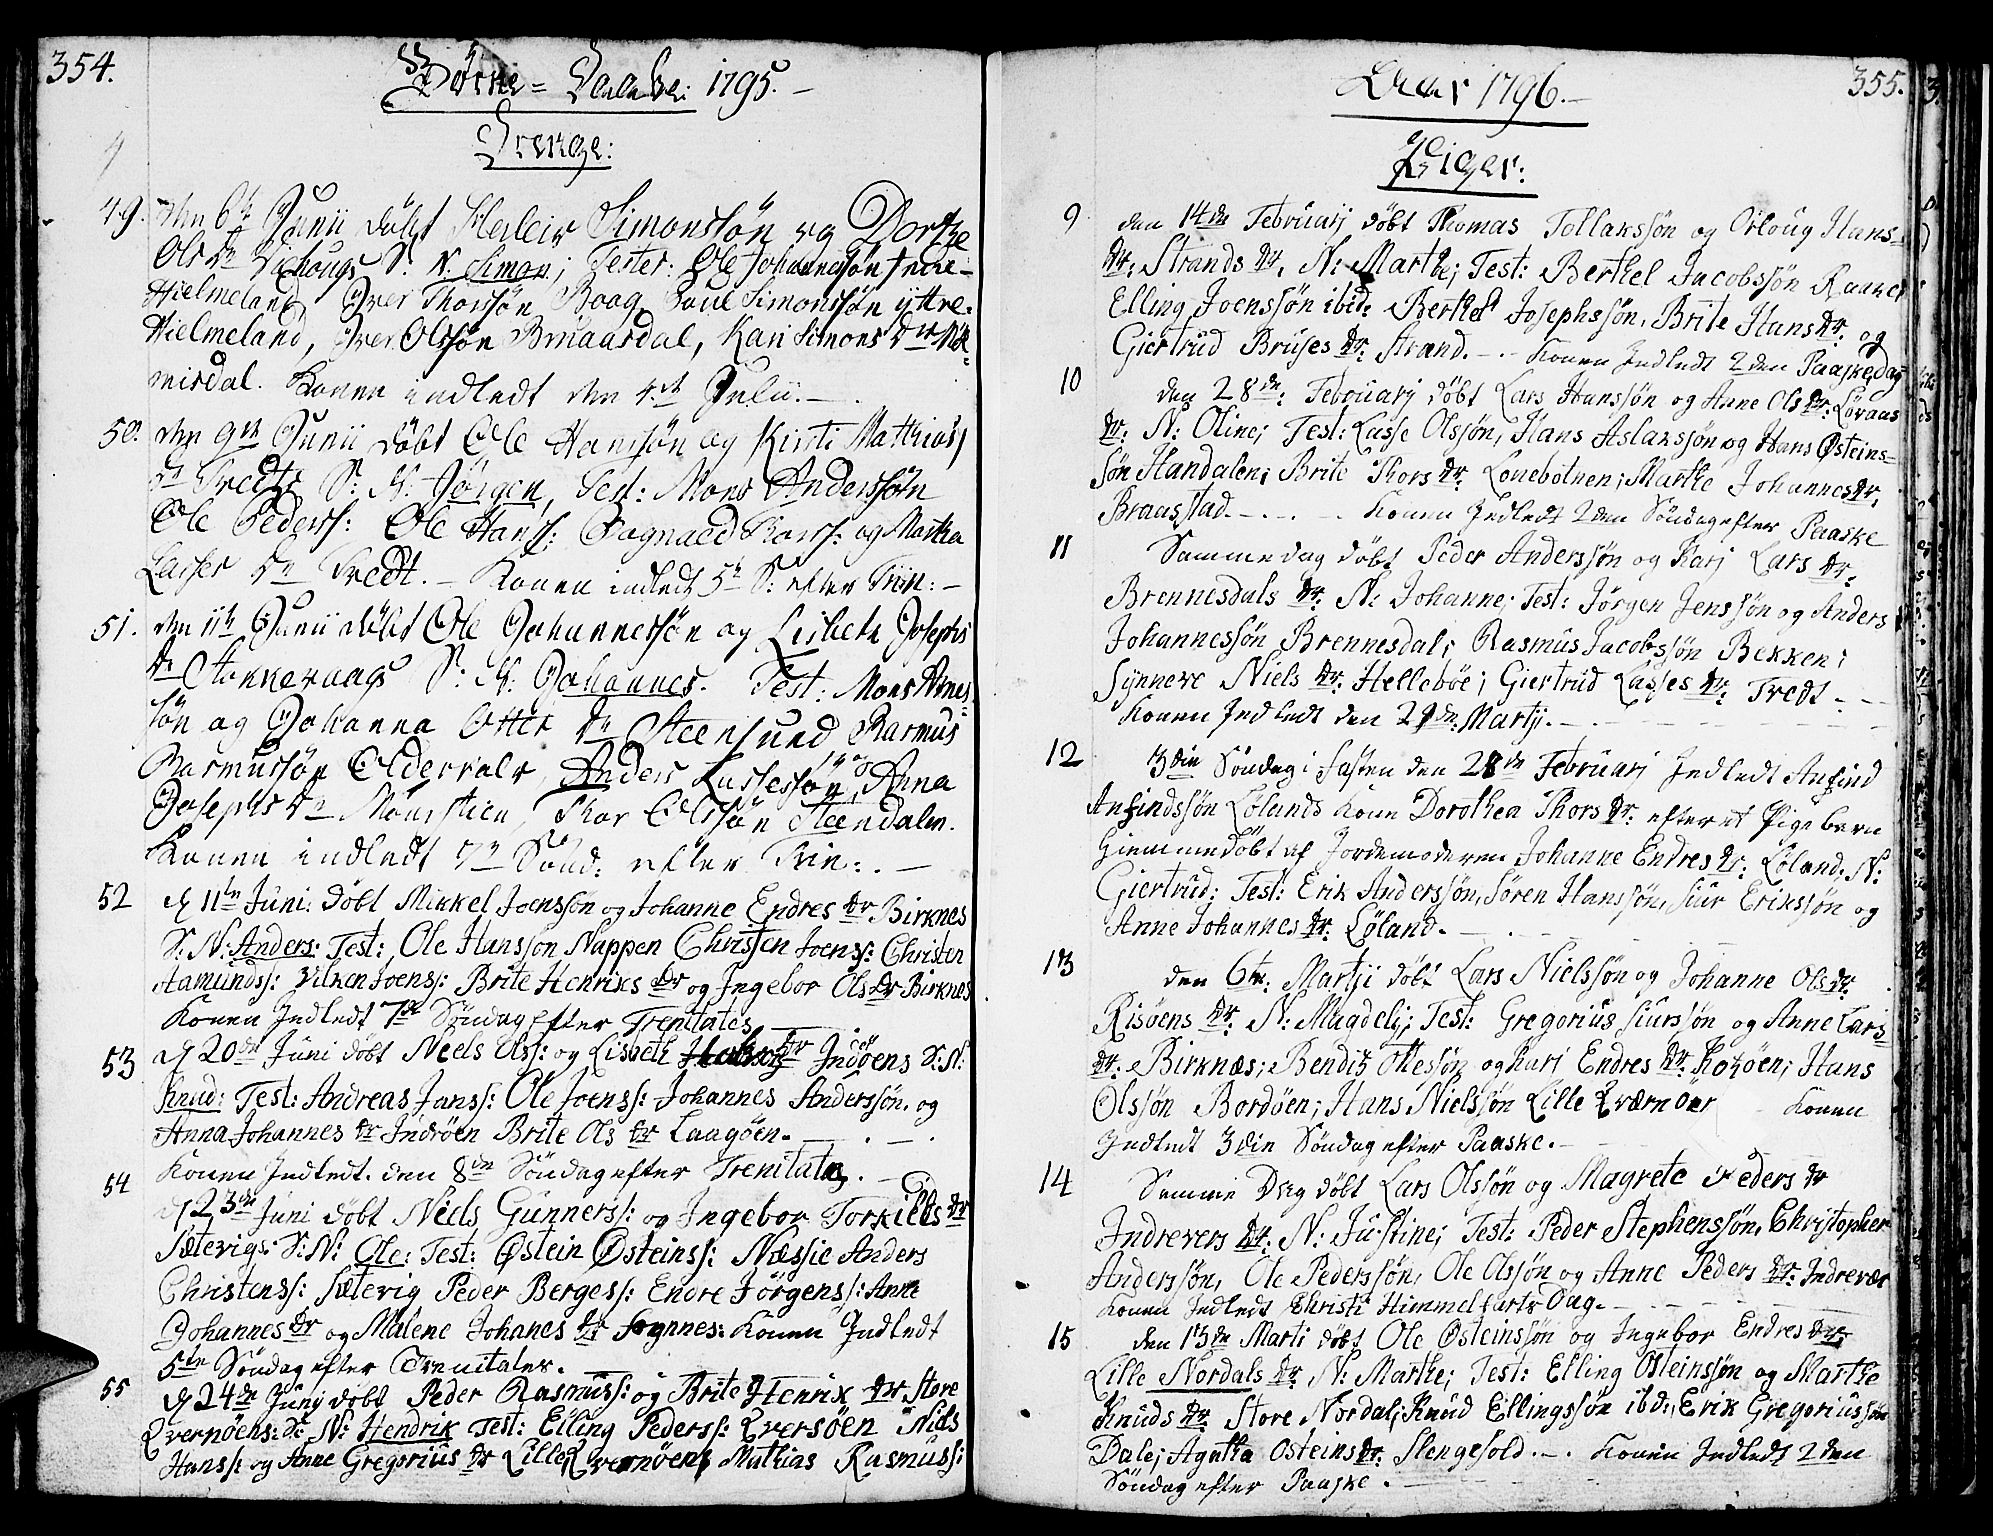 354.
Børne = Daabe: 1795. -
Drenge:
49. den 6te Junii døbt Simonssøn og Dorthe
Ols Dr S: N. Simon; Tester: Ole Johannessøn Indre-
Hielmeland, Iver Thorsøn Boag, Poul Simonssøn yttre-
Hielmeland, Iver Olssøn Bruaasdal, Kari Simons Dr
misdal. Konen indledt den 4de Julii. -
50. den 9de Junii døbt Ole Hanssøn og Kirsti Matthias
Dr Tredts S: N. Jørgen, Test: Mons Anderssøn
Ole Peders: Ole Hans: og Martha
Lasses Dr Tredt. - Konen indledt 5te S: efter Trin: -
51. den 11te Junii døbt Ole Johannessøn og Lisbeth Josephs
Dr Stokkevaags S: N: Johannes. Test: Mons Arnes-
søn og Johanna Otter Dr Steensund, Rasmus
Rasmussøn Oldervale, Anders Lassessøn, og Anna
Josephs Dr Thor Olssøn Steendalen.
Konen indledt 7de Sønd: efter Trin: . -
52 d 11te Juni: døbt Mikkel Joenssøn og Johanne Endres Dr Birknes
S: N: Anders: Test: Ole Hansson Nappen Christen Joens: Christen
Aamunds: Vilken Joens: Brite Henriks Dr og Ingebor Ols Dr Birknes
Konen Indledt 7de Søndag efter Trenitates
53 d 20de Juni døbt Neels Ols: og Lisbeth Dr Indøens S: N:
Knud: Test: Andreas Jans: Ole Joens: Johannes Anderssøn. og
Anna Johannes Dr Indrøen Brite Ols Dr Laagøen.
Konen Indledt. den 8de Søndag efter Trenitates.
54 d 23de Juni døbt Neels Gunners: og Ingebor Torkilds Dr
Sætevigs: S: N: Ole: Test: Østein Østeins: Næssie Anders
Christens: Sætevig Peder Berges: Endre Jørgens: Anne
Johannes Dr og Malene Johanes Dr Sognnes: Konen Indledt
5te Søndag efter Trenitates.
55 d 24de Junij døbt Peder Rasmus: og Brite Henrix Dr Store
Qvernøens: S: N: Hendrik Test: Elling Peders: Qversøen Niels
Hans: og Anne Gregorius Dr Lille Qvernøens Mathias Rasmus:
355.
Aar 1796. -
Piger:
9 den 14de Februarj døbt Thomas Tollakssøn og Orloug Hans-
Dr. Strands Dr. N: Marthe; Test: Berthel Jacobssøn Raaker
Elling Joenssøn ibid: Berthel Josephssøn, Brite Hans Dr. og
Giertrud Bruses Dr. Strand. - . - Konen Indledt 2den Paaskedag
10 den 28de: Februarj døbt Lars Hanssøn og Anne Ols Dr: Løvaas
Dr: N: Oline; Test: Lasse Olssøn, Hans Aslakssøn og Hans Østeins-
søn Handalen; Brite Thors Dr. Lonebotnen; Marthe Johannes Dr.
Braasstad. - . - . - Konen Indledt 2den Søndag efter Paaske
11 Samme dag døbt Peder Anderssøn og Karj Lars Dr.
Brennesdals Dr. N: Johanne; Test: Jørgen Jenssøn og Anders
Johannessøn Brennesdal; Rasmus Jacobssøn Bekken;
Synneve Niels Dr. Hellebøe; Giertrud Lasses Dr. Tredt -
Konen Indledt den 29de: Martji. -
12 3die Søndag i Fasten den 28de Februarj Indledt Anfind
Anfindssøn Lølands Kone Dorothea Thors Dr. efter et Pige barn
hiemmedøbt af Jordemoderen Johanne Endres Dr: Løland. N:
Giertrud: Test: Erik Anderssøn, Søren Hanssøn, Siur Erikssøn og
Anne Johannes Dr. Løland.
13 den 6te: Martji døbt Lars Nielssøn og Johanne Ols Dr.
Risøens Dr. N: Magdeli; Test: Gregorius Siurssøn og Anne Lars
Dr: Birknæs; Bendix Ottessøn og Kari Endres Dr. Rotøen; Hans
Olssøn Bordøen; Hans Nielssøn Lille Qværnøer Konen
Indledt 3die Søndag efter Paaske. -
14 Samme Dag døbt Lars Olssøn og Magrete Peders Dr
Indrevers Dr: N: Justine; Test: Peder Stephenssøn, Christopher
Anderssøn, Ole Pederssøn, Ole Olssøn og Anne Peders Dr. Indrevær
Konen Indledt Christi Himmelfarts Dag.
15 den 13de Marti døbt Ole Østeinssøn og Ingebor Endres Dr.
Lille Nordals Dr. N: Marthe; Test: Elling Osteinssøn og Marthe
Knuds Dr. Store Nordal; Knud Ellingssøn ibd:, Erik Gregoriussøn
Dale; Agatha Osteins Dr. Slengesold. - . Konen Indledt 2den
Søndag efter Paaske.